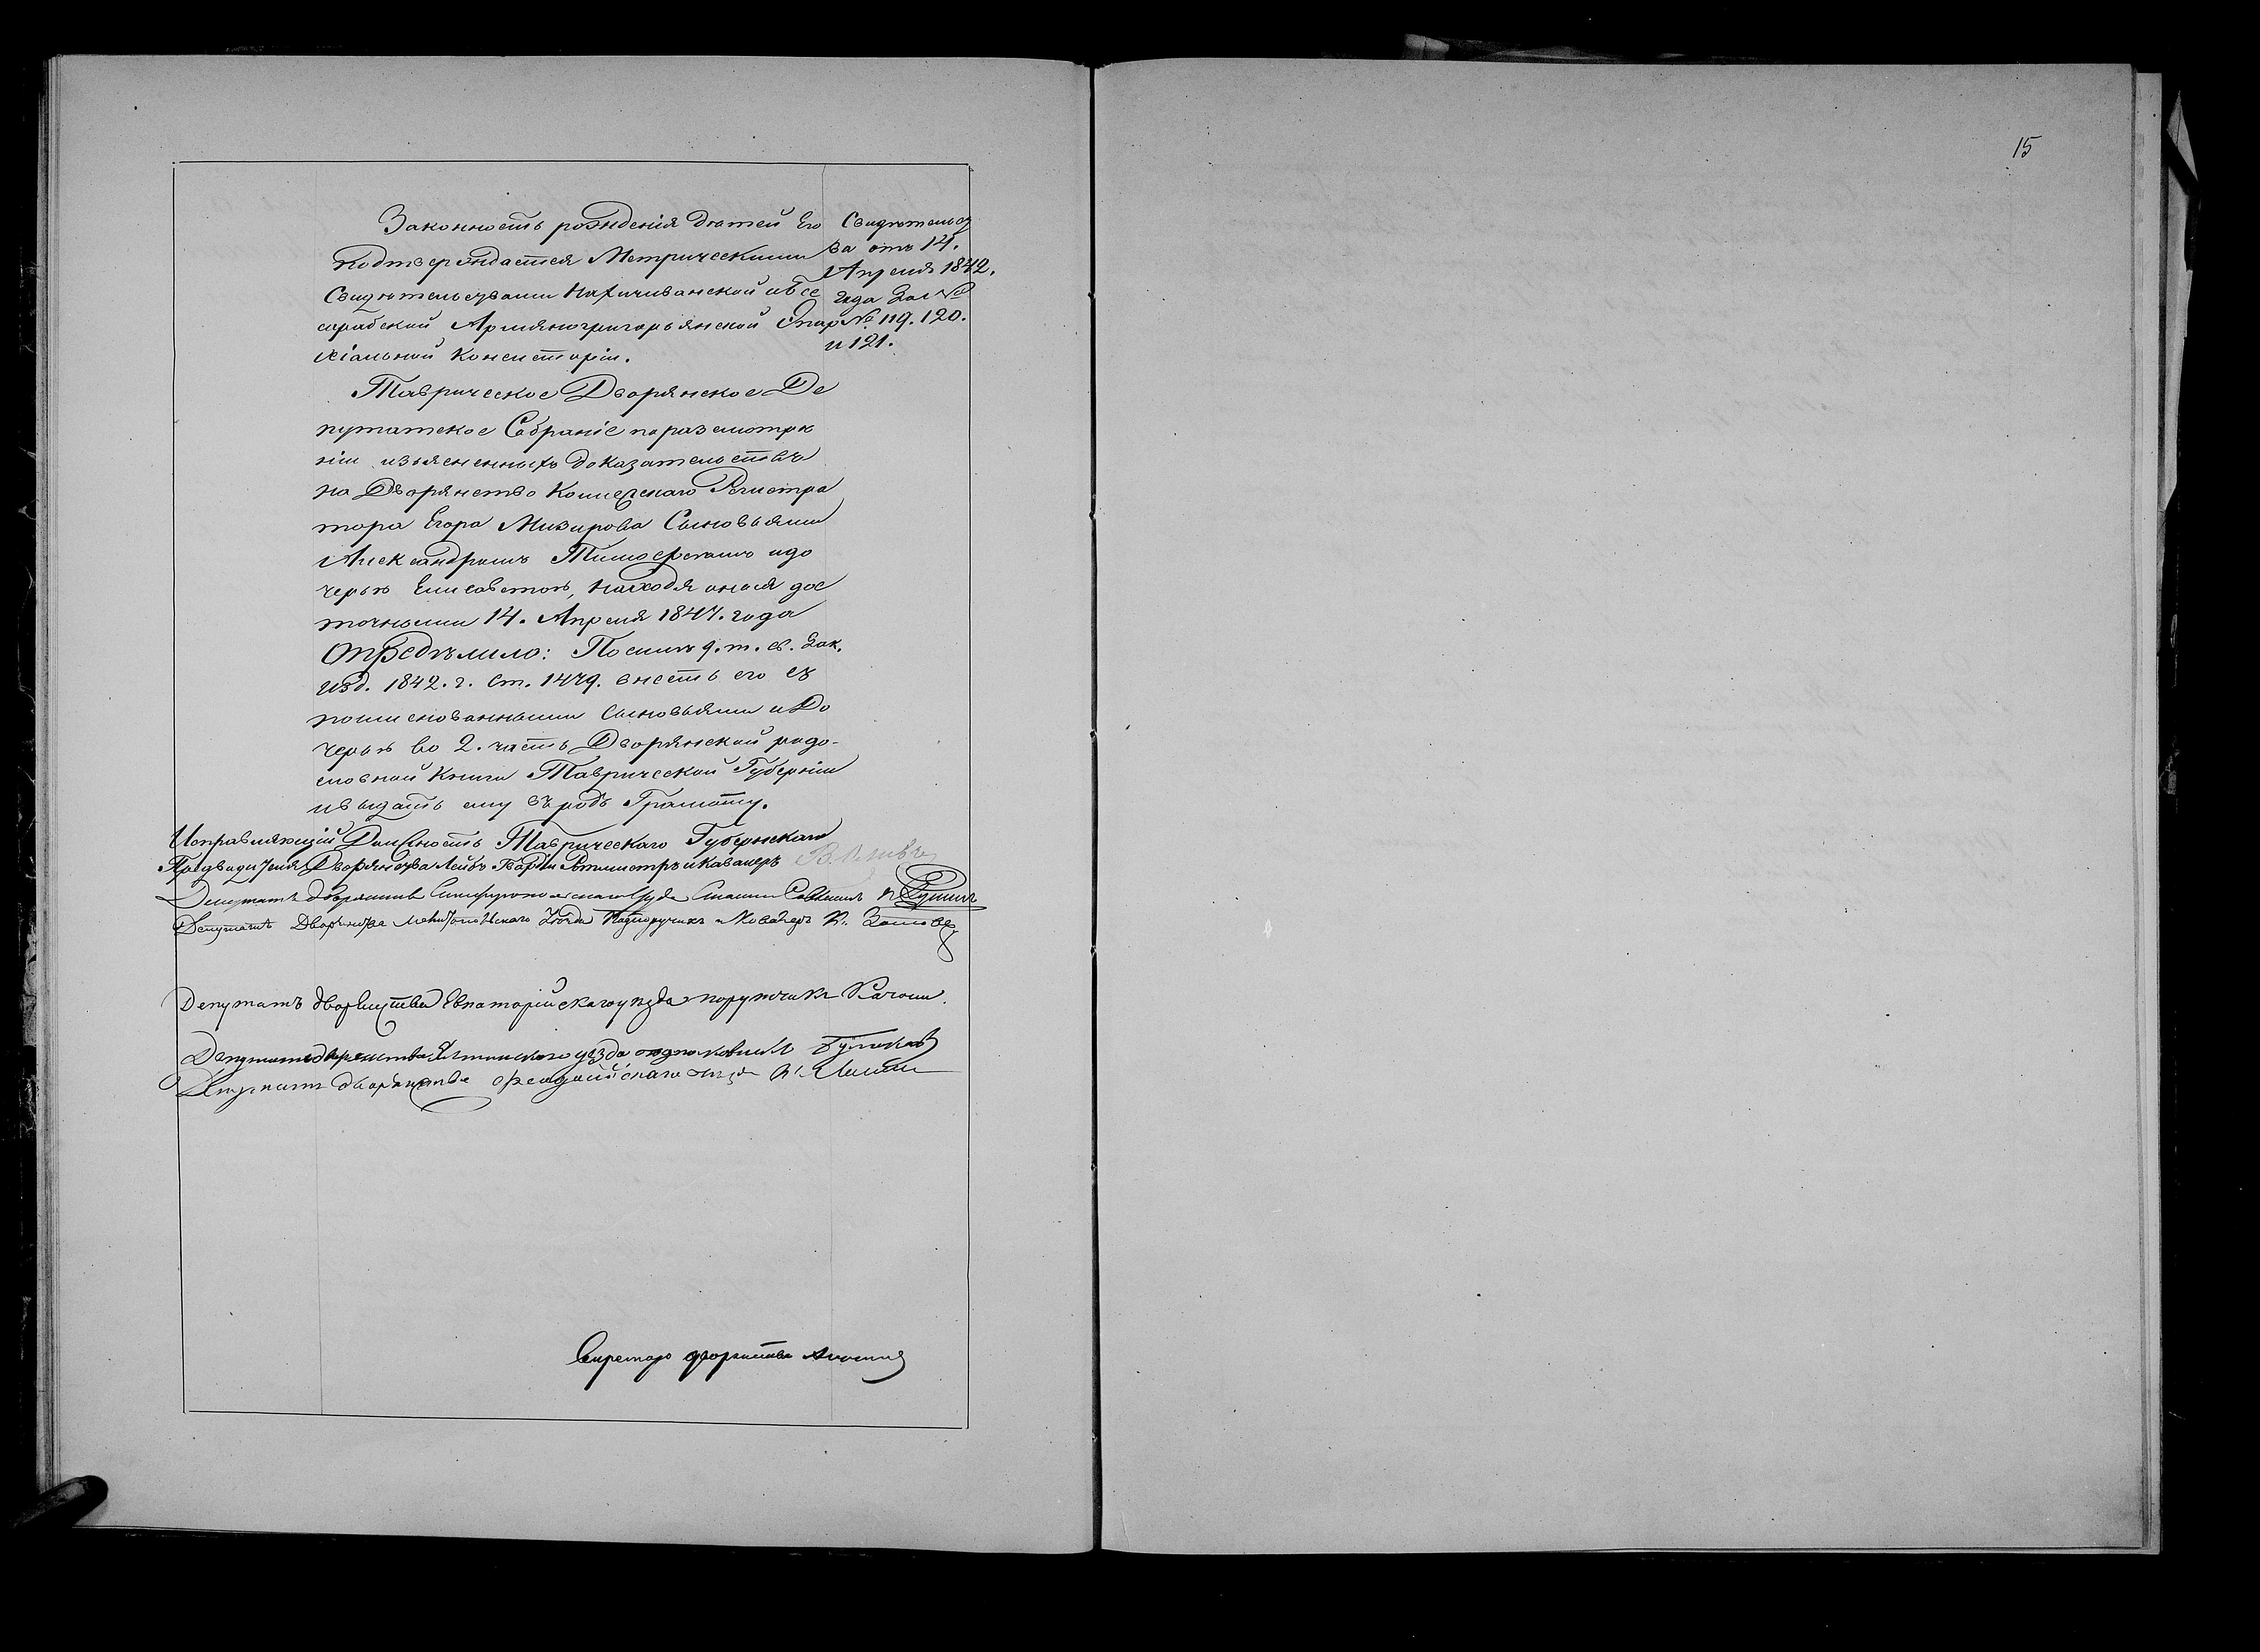 15
Законность рожденія дѣтей Его
подтверждается Метрическими
Свидѣтельствами Нахичиванской и Бес
сарабской Армяногригорьянской Епар
хіальной Консисторіи.
Свидѣтельст
ва отъ 14.
Апреля 1842.
года За №
№ 119. 120.
и 121.
Таврическое Дворянское Де
путатское Собраніе по разсмотрѣ
ніи изъясненныхъ доказательствъ
на Дворянство Коллежскаго Регистра
тора Егора Мизирова Сыновьями
Александромъ Тимофеемъ и до
черью Елисаветою, находя оныя дос
точными 14. Апреля 1847. года
Опредѣлило: По силѣ 9. т. св. Зак.
изд. 1842. г. ст. 1479. внесть его съ
поименованными Сыновьями и До
черью во 2. часть Дворянской родо-
словной Книги Таврической Губерніи
и выдать ему въ родъ Грамоту.
Исправляющій Должность Таврическаго Губернскаго
Предводителя Дворянства Лейбъ Гвардіи Ротмистръ и Кавалеръ В. Оливъ
Депутатъ дворянства Симферопольскаго уѣзда
Депутатъ Дворянства Мелитопольскаго Уѣзда Подпоручикъ и Кавалеръ
Депутатъ дворянства Евпаторійскаго уѣзда поручикъ Качони.
Депутатъ дворянства Ялтинскаго уѣзда подполковникъ
Депутатъ дворянства Феодосійскаго уѣзда
Секретарь дворянства